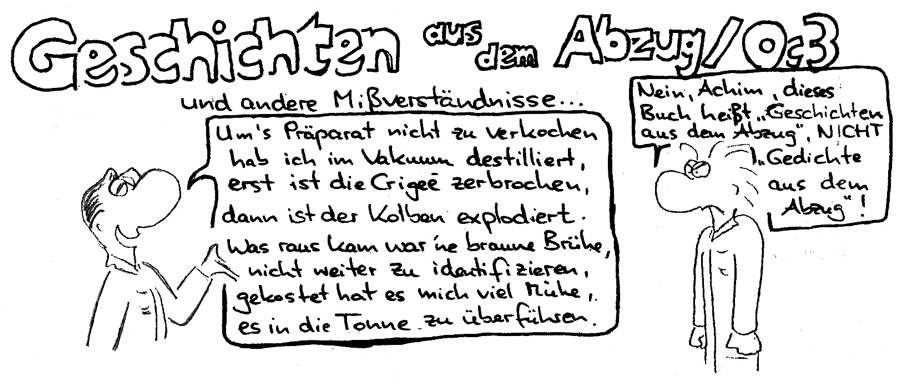 Geschichten aus dem Abzug/Oc3
und andere Mißverständnisse...
Um's Präparat nicht zu verkochen
hab ich im Vakuum destilliert,
erst ist die Crigeé zerbrochen,
dann ist der Kolben explodiert.
Was raus kam war 'ne braune Brühe,
nicht weiter zu identifizieren,
gekostet hat es mich viel Mühe,
es in die Tonne zu überführen.
Nein, Achim, dieses
Buch heißt „Geschichten
aus dem Abzug", NICHT
„Gedichte
aus dem
Abzug"!